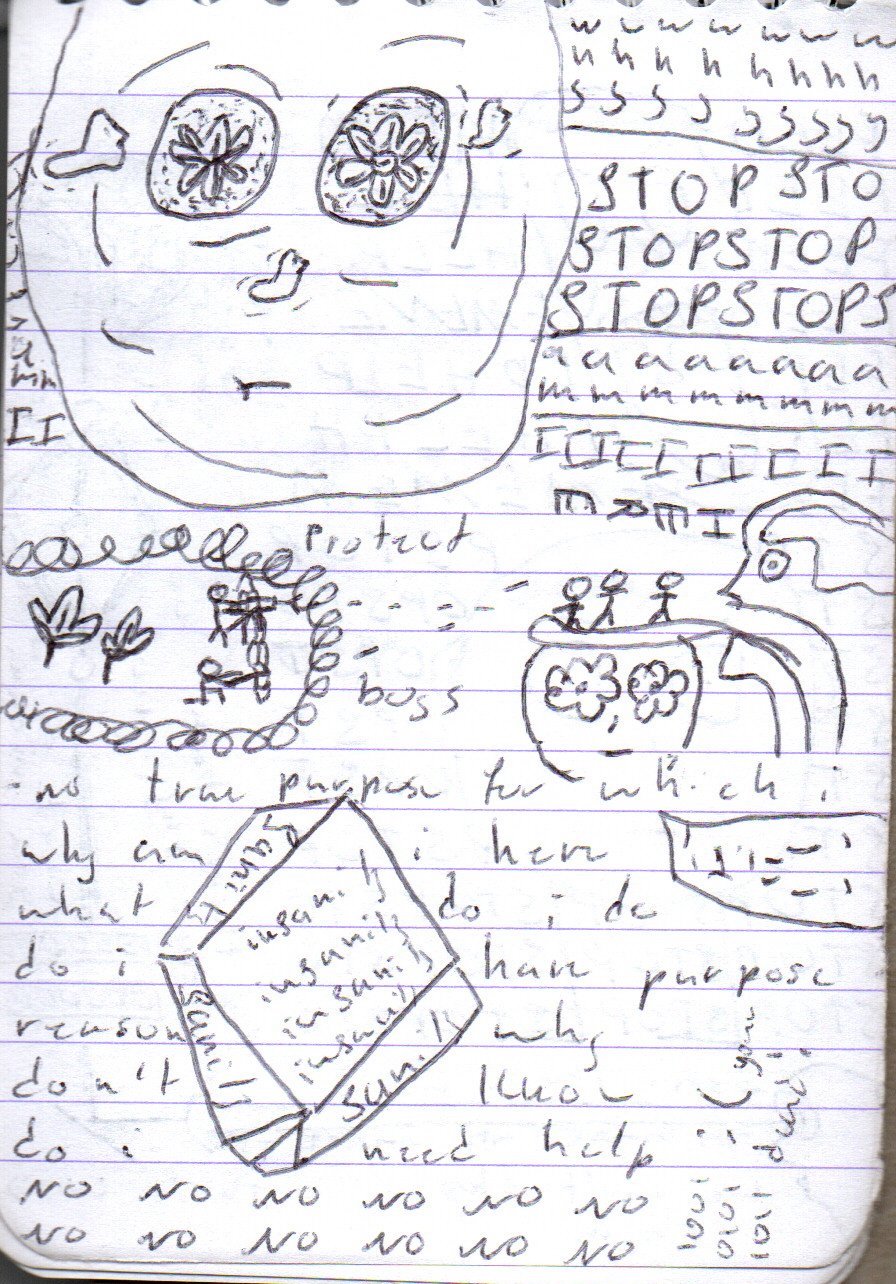 w w w w w w w
h h h h h h h h
y y y y y y y y y
STOP STO
STOPSTOP
STOPSTOPS
a a a a a a a a
m m m m m m m m m
I I I I I I I I I
m m
II
Protect
boss
no true purpose for which i
why am i here
what do i do
do i have purpose
reason why
don't know
do i need help
sanity
insanity
insanity
insanity
insanity
sanity
sanity
NO NO NO NO NO NO
NO NO NO NO NO NO